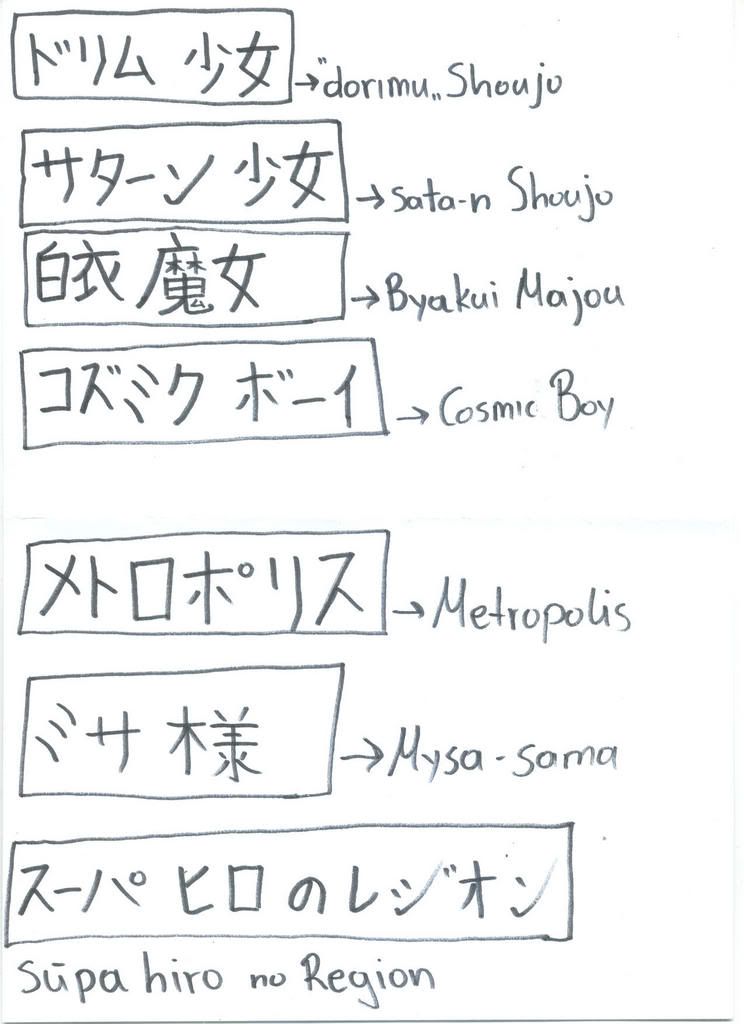 ドリム 少女 →"dorimu„ Shoujo
サターン 少女 →sata-n Shoujo
白衣 魔女 →Byakui Majou
コズミク ボーイ →Cosmic Boy
メトロポリス →Metropolis
ミサ 様 →Mysa-sama
スーパ ヒロ の レジオン
Sūpa hiro no Region